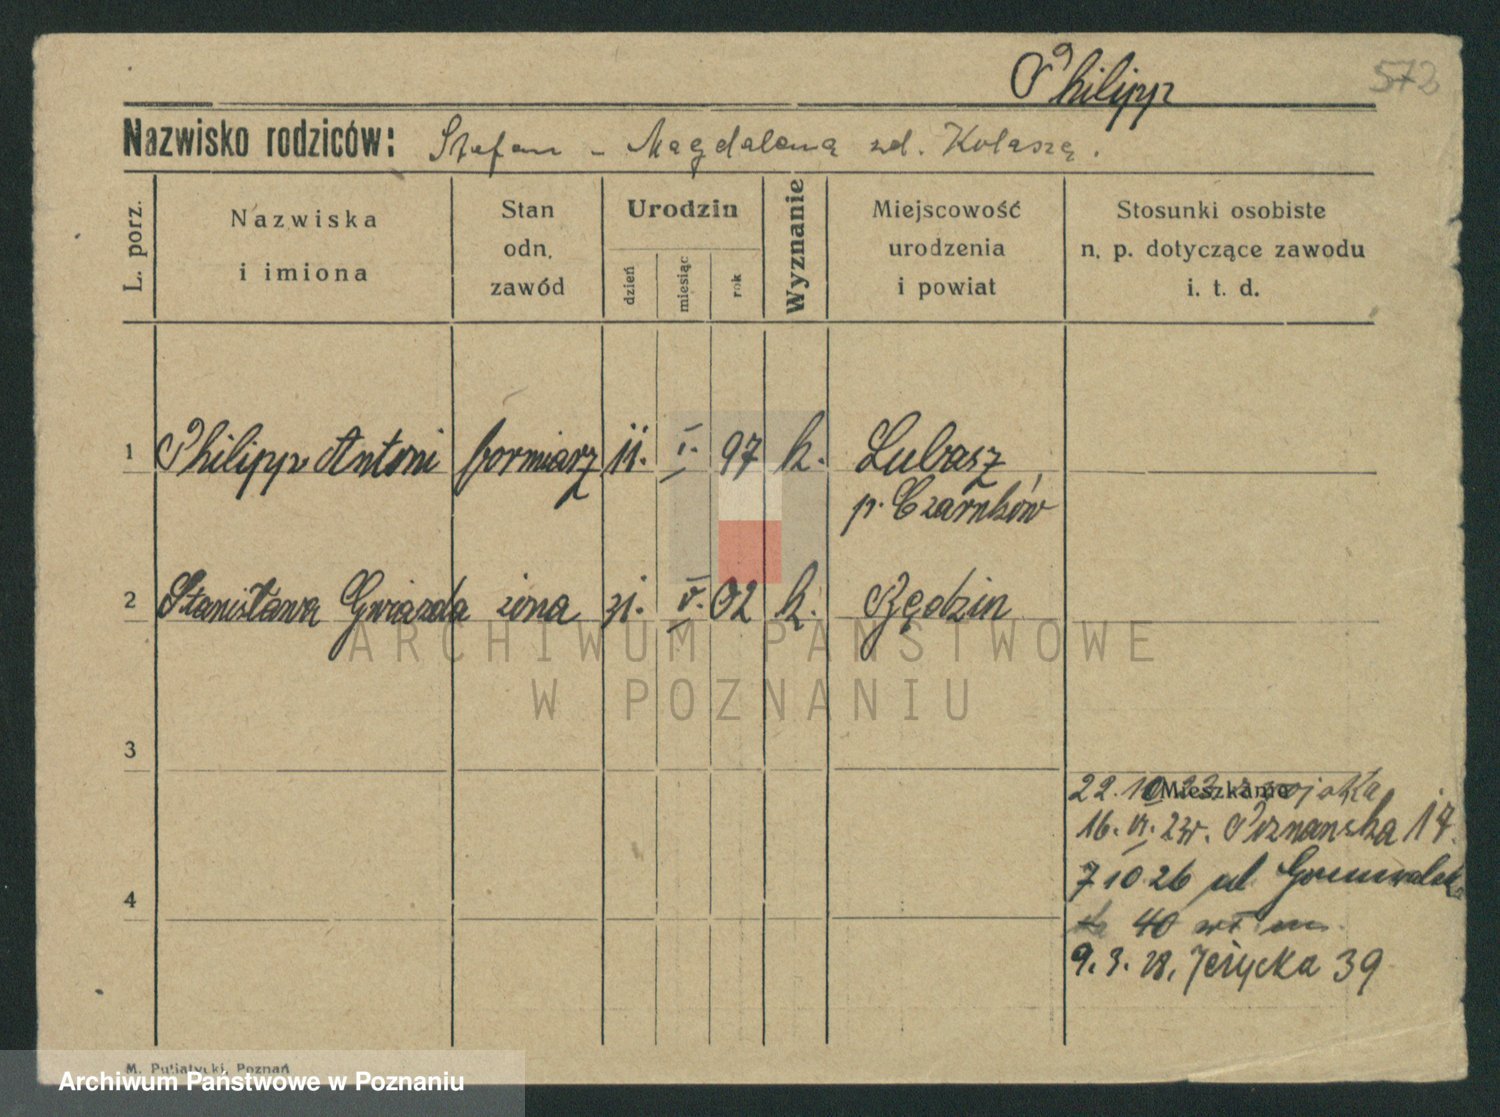 Philipp
573
Nazwisko rodziców: Stefan - Magdalena zd. Kolaszą.
L. porz.
Nazwiska
i imiona
Stan
odn.
zawód
Urodzin
dzień
miesiąc
rok
Wyznanie
Miejscowość
urodzenia
i powiat
Stosunki osobiste
n. p. dotyczące zawodu
i. t. d.
1 Philipp Antoni formiarz 11. I. 97 k. Lubasz
p. Czarnków
2 Stanisława Gwiazda żona 31. V. 02 k. Będzin
3
Mieszkanie
22.10.23 z wojska
16. VI. 23r. Poznańska 17.
4
7 10 26 ul Grunwaldz
ka 40 wł m.
9. 3. 28. Jeżycka 39
ARCHIWUM PAŃSTWOWE
W POZNANIU
M. Putiatycki, Poznań
Archiwum Państwowe w Poznaniu